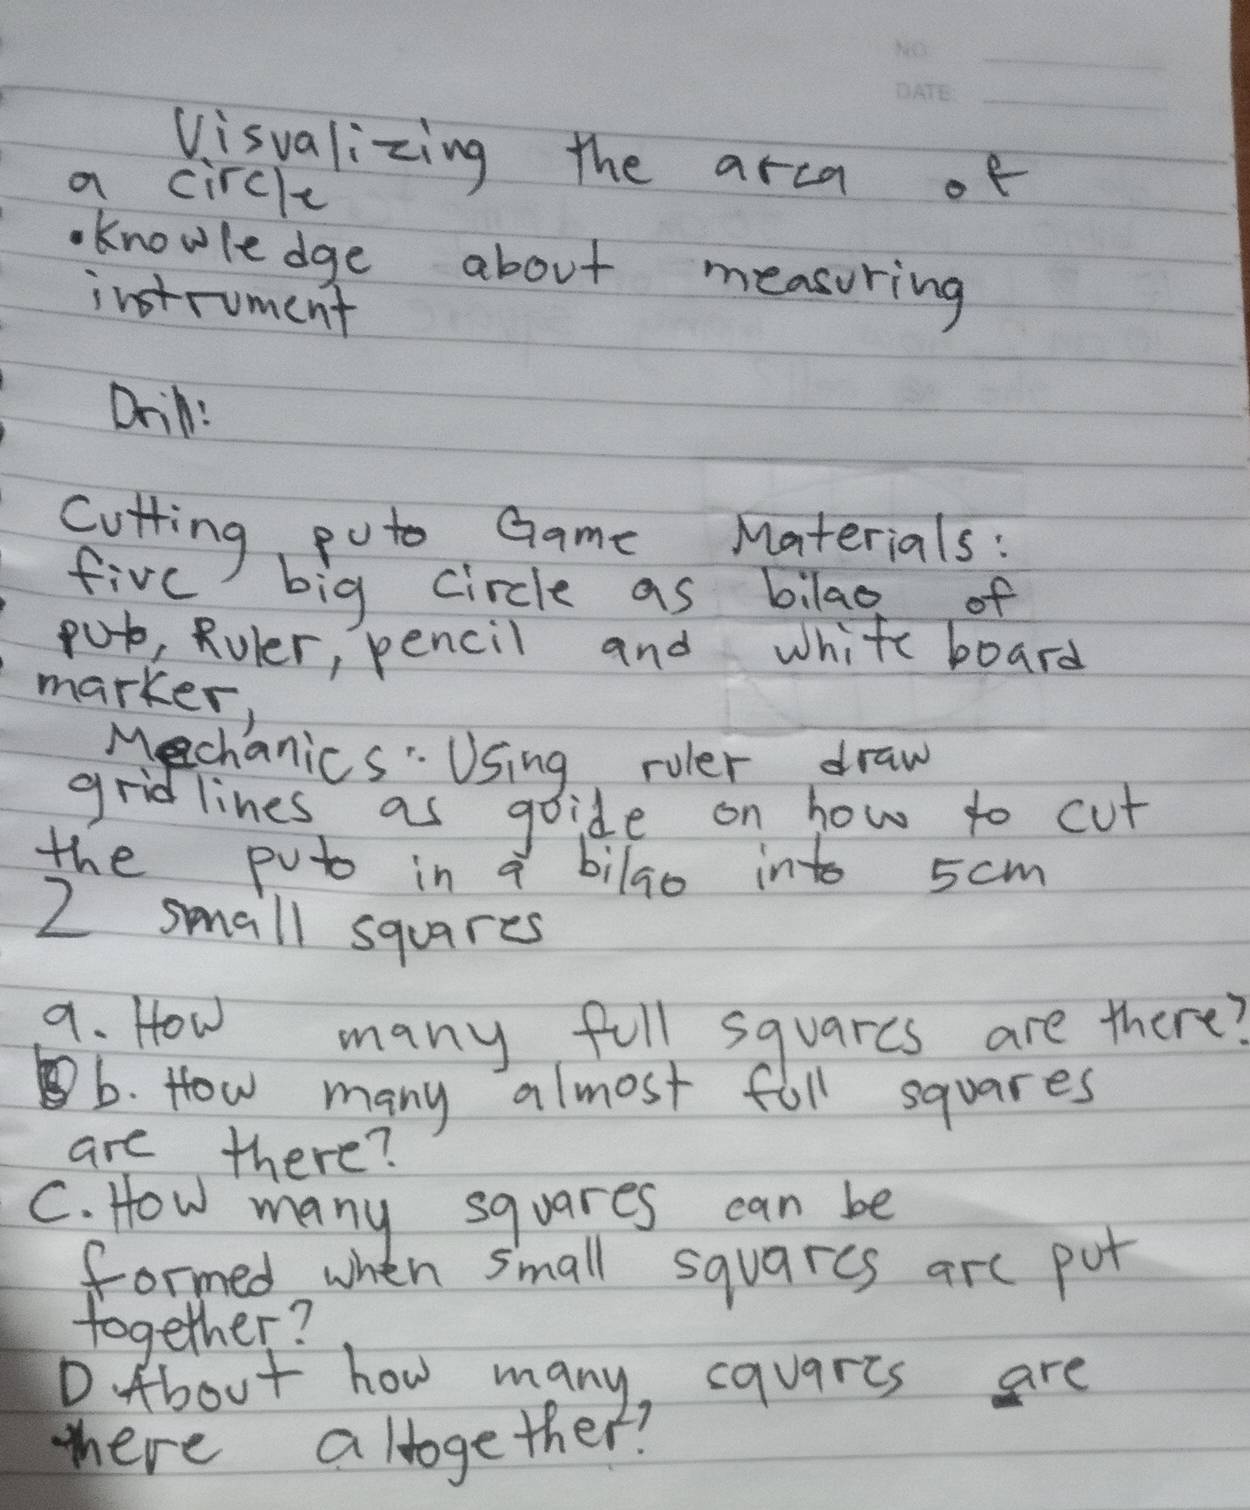 NO
DATE:
Visualizing the area of
a circle
• Knowledge about measuring
instrument
Drill:
Cutting puto Game Materials:
five big circle as bilao of
puto, Ruler, pencil and white board
marker,
Mechanics: Using ruler draw
grid lines as guide on how to cut
the puto in a bilao into 5cm
2 small squares
a. How many full squares are there?
b. How many almost full squares
are there?
C. How many squares can be
formed when small squares are put
together?
D About how many squares are
there altogether?